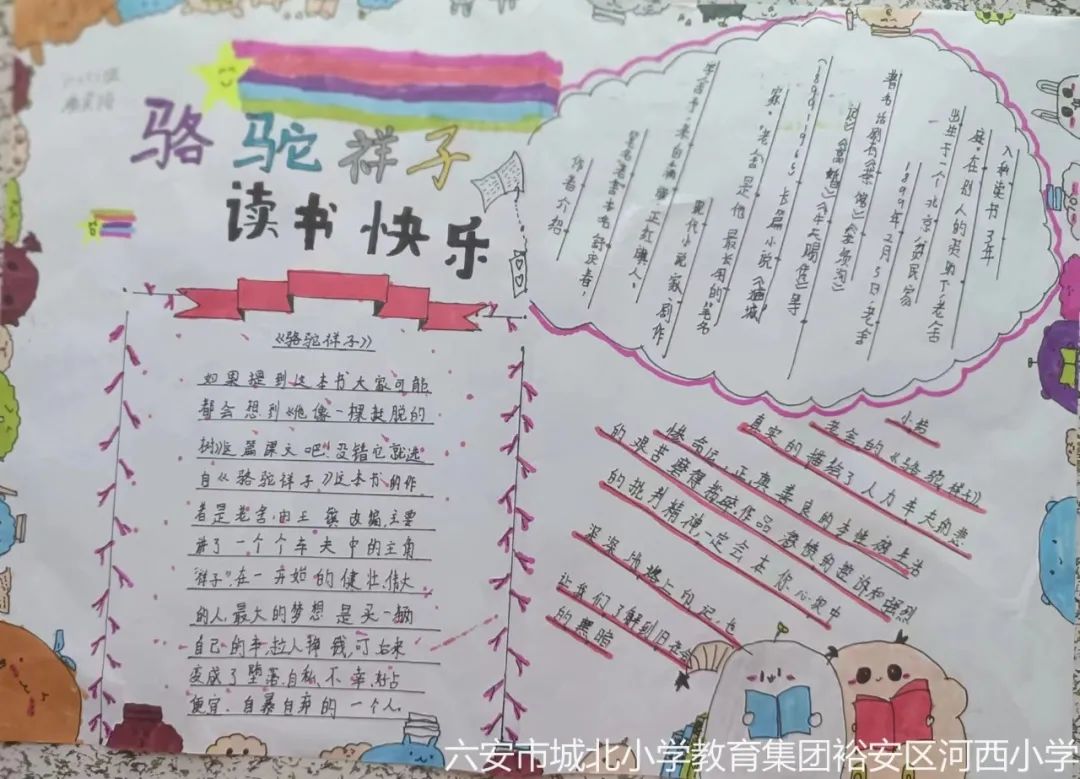 骆驼祥子
读书快乐
《骆驼祥子》
如果提到这本书大家可能
都会想到《他像一棵挺脱的
树》这篇课文吧!没错它就选
自《骆驼祥子》这本书的作
者是老舍,由王 改编,主要
讲了一个个车夫中的主角
"祥子"在一开始的健壮,伟大
的人,最大的梦想是买一辆
自己的车,拉人挣钱,可后来
变成了堕落.自私.不幸.好占
便宜.自暴自弃的一个人。
作者介绍
笔名老舍本名舒庆春,
字舍予,来自满族正红旗人。
现代小说家剧作
家."老舍是他最长用的笔名
(1899-1966)长篇小说《猫城
记》《离婚》《牛天赐传》等
著名话剧有《茶馆》《龙须沟》
1899年2月3日,老舍
出生于一个北京贫民家
庭.在别人的资助下,老舍
入私塾读书3年
小结
老舍的《骆驼祥子》
真实的描绘了人力车夫的悲
惨命运,正庚善良的本性被生活
的艰苦磨得粉碎,作品 的哲诉和强烈
的批判精神,一定会在你心里中
深深地烙上印记,也
让我们了解到旧社会
的黑暗
六安市城北小学教育集团裕安区河西小学